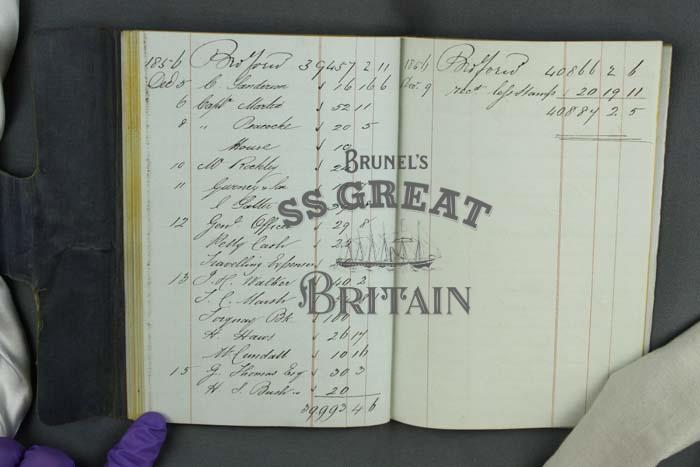 1856 Bro^t for^d 39457 2 11
Dec 5 C. Sanderson " 16 16 6
6 Capt^n Martin " 52 11
8 " Peacocke " 20 5
House " 10
10 M^r Rockley
11 Gurney & Son
12 Gen^l Office " 29 8
Petty Cash "
Travelling Expenses
13 J. H. Walker 40 2
T. C. Marsh
Torquay Bk " 100
H. Haws " 26 17
M^cCundall " 10 16
15 G. Thomas Esq " 30 3
H. S. Bush " 20
39993 4 6
1856 Bro^t for^d 40866 2 6
Dec. 9 rec^d less stamps " 20 19 11
40887 2 5
BRUNEL'S
SS GREAT
BRITAIN